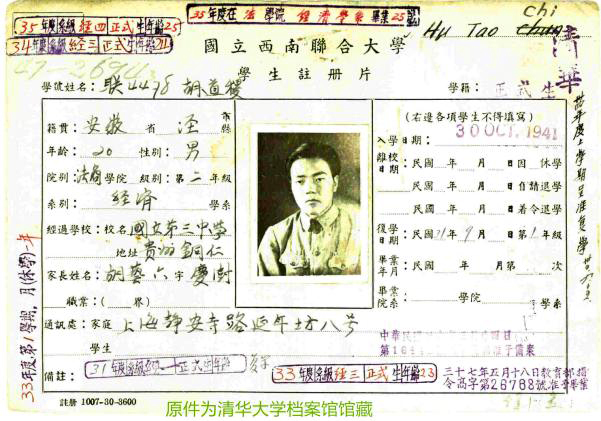 35年度系級 經四 正式生 年齡25
35年度在 法 學院 經濟 學系 畢業 25
34年度系級 經三 正式生 年齡24
Hu Tao Chi
國立西南聯合大學
清華
學生註冊片
學號姓名：聯4498 胡道
學籍：正式生
籍貫：安徽 省 涇 縣
年齡：20 性別：男
院別：法商 學院 級別：第二年級
系別：經濟 學系
經過學校：校名 國立第三中學
地址 貴州銅仁
家長姓名：胡藝六 字 慶澍
職業：（ 界）
通訊處：家庭 上海靜安寺路延年坊八号
學生
備註：
31年度系級 正式生 年齡
33年度系級 經三 正式生 年齡23
註冊 1007-30-3600
（右邊各項學生不得填寫）
入學日期：30 OCT. 1941
離校日期：民國 年 月 日因 休學
民國 年 月 日自請退學
民國 年 月 日着令退學
復學日期：民國31年9月 日第1年級
畢業年月：民國 年 月第 次
畢業院系： 學院 學系
准予備案
三十七年五月十八日教育部指
令高字第26788號准予畢業
33年度第1學期， 月(休學)一年
原件为清华大学档案馆馆藏